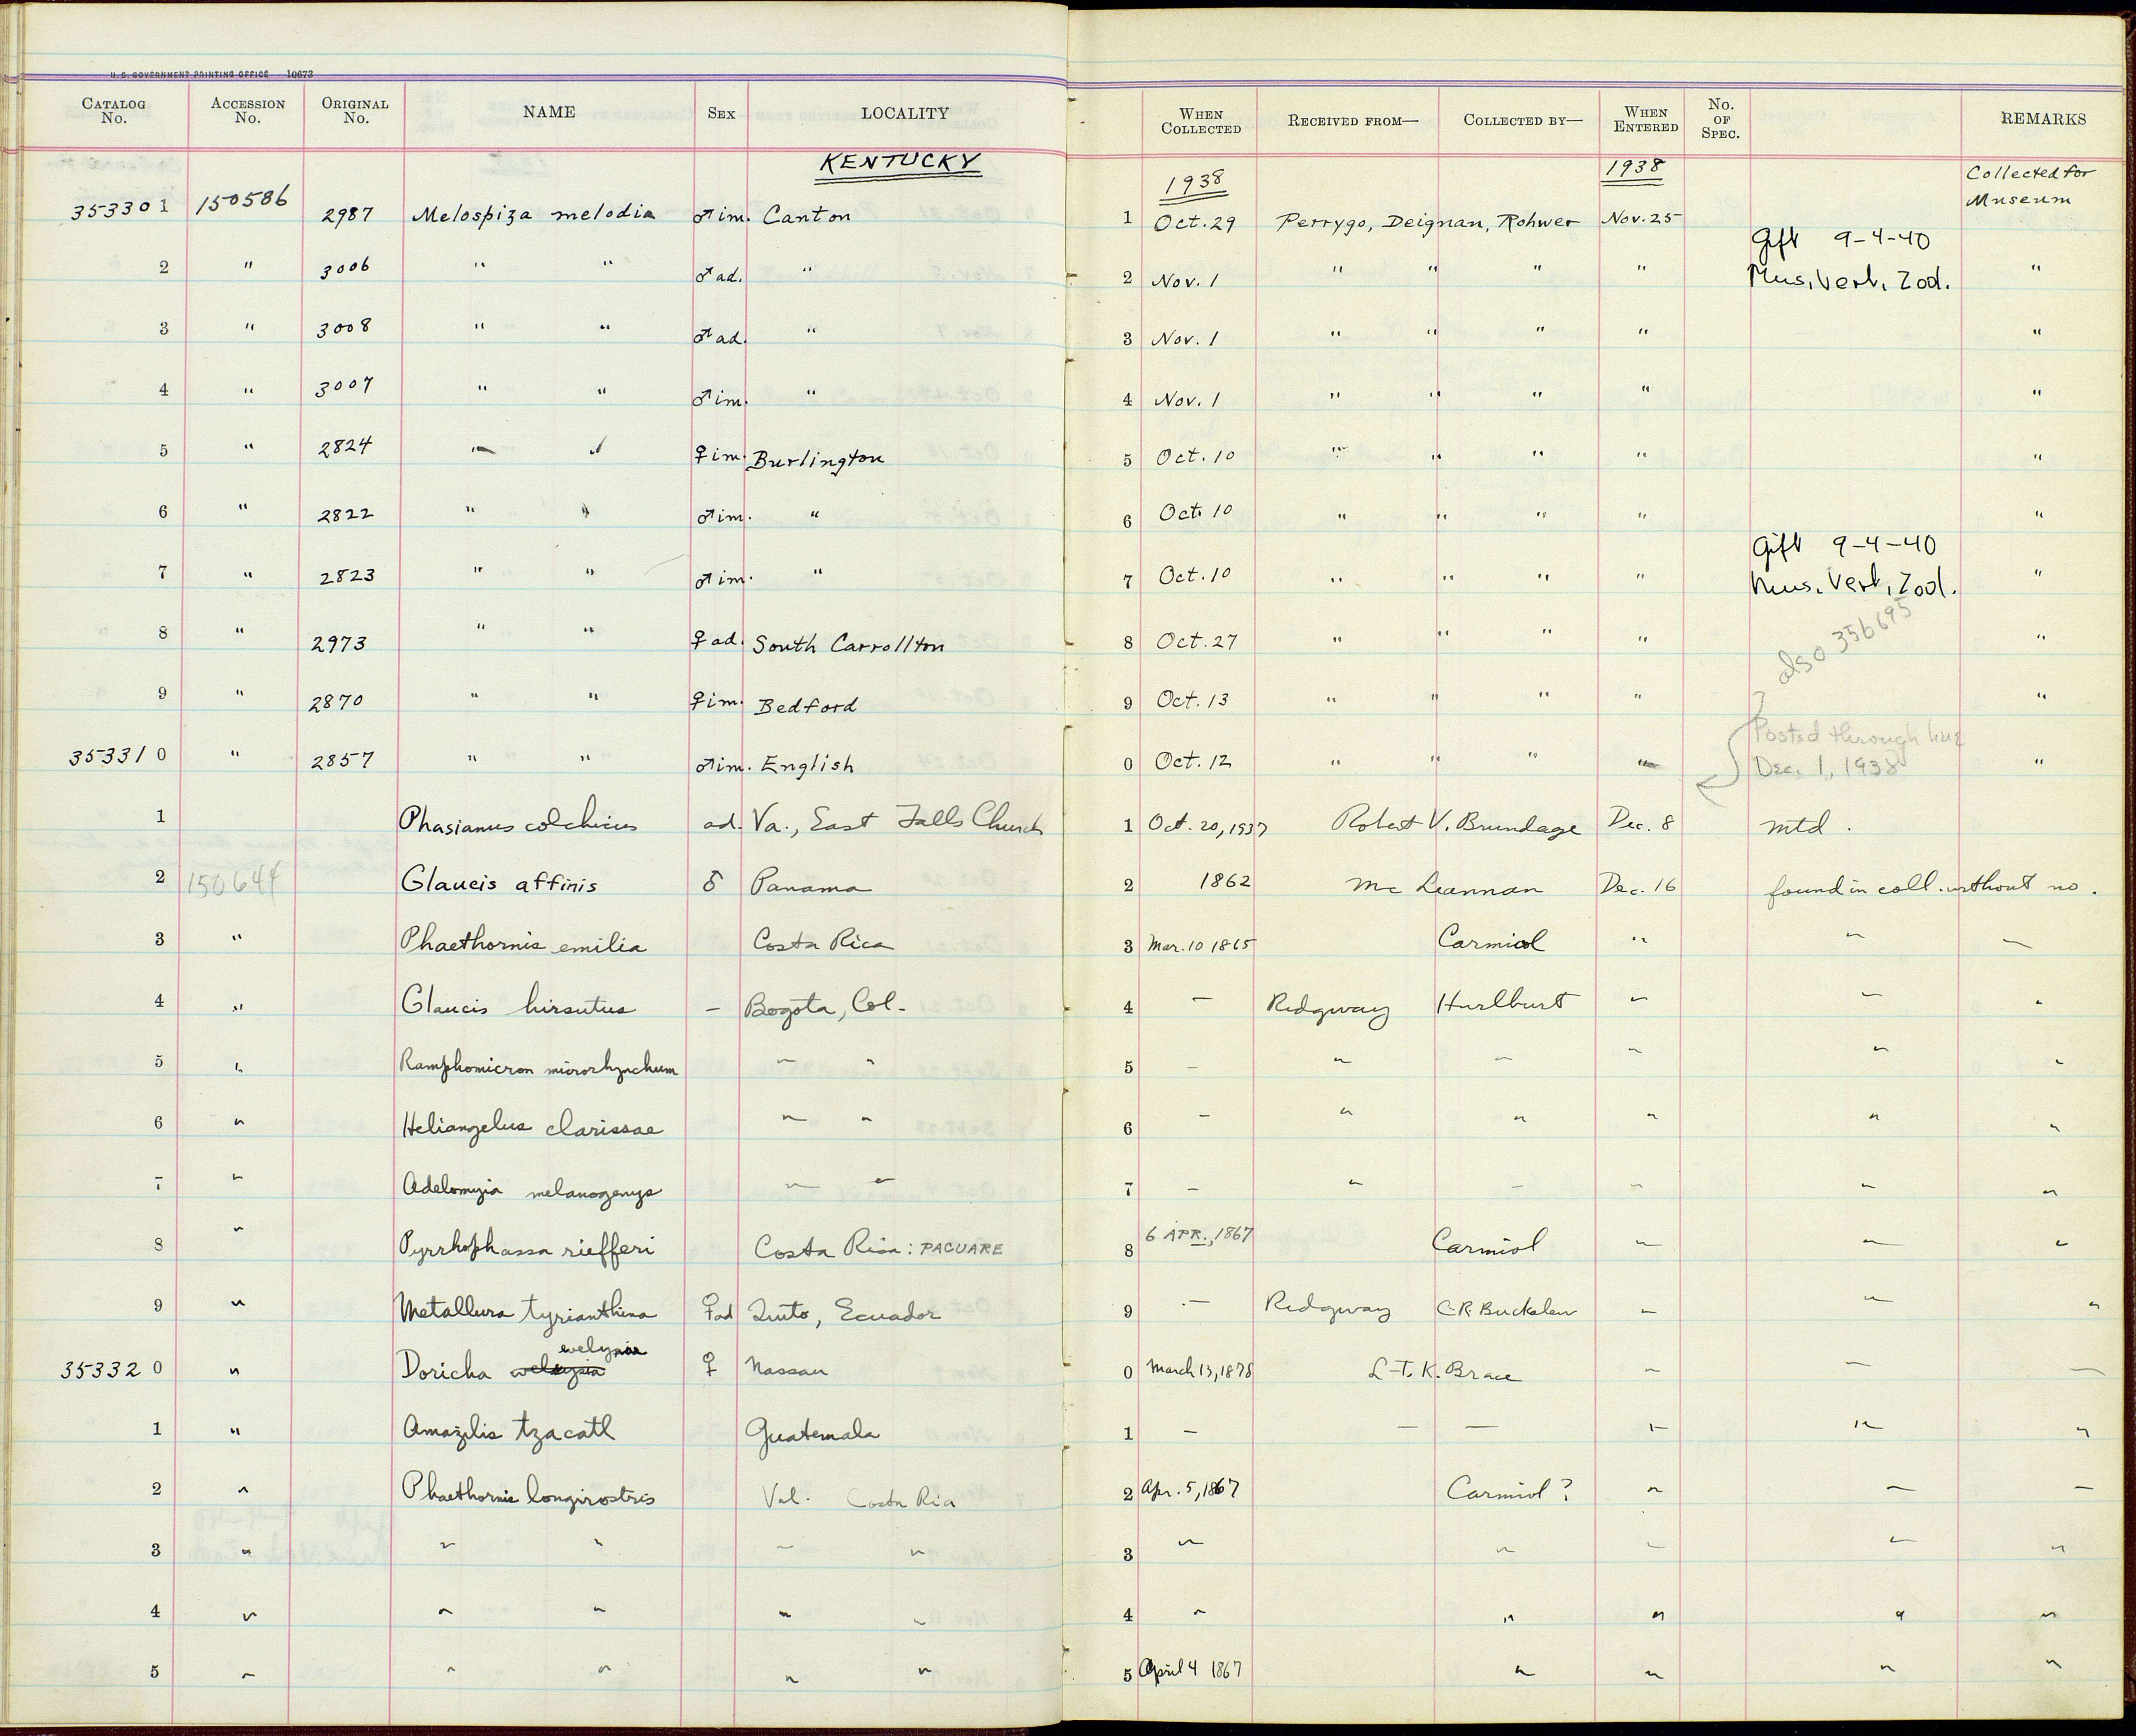 U.S. GOVERNMENT PRINTING OFFICE 10673
CATALOG No. ACCESSION No. ORIGINAL No. NAME SEX LOCALITY WHEN COLLECTED RECEIVED FROM— COLLECTED BY— WHEN ENTERED No. OF SPEC. REMARKS
KENTUCKY 1938 1938 Collected for Museum
353301 150586 2987 Melospiza melodia ♂im. Canton 1 Oct. 29 Perrygo, Deignan, Rohwer Nov. 25
Gift 9-4-40
2 " 3006 " " ♂ad. " 2 Nov. 1 " " " " Mus. Vert. Zool. "
3 " 3008 " " ♂ad. " 3 Nov. 1 " " " " "
4 " 3007 " " ♂im. " 4 Nov. 1 " " " " "
5 " 2824 " " ♀im. Burlington 5 Oct. 10 " " " " "
6 " 2822 " " ♂im. " 6 Oct. 10 " " " " "
Gift 9-4-40
7 " 2823 " " ♂im. " 7 Oct. 10 " " " " Mus. Vert. Zool. "
also 356695
8 " 2973 " " ♀ad. South Carrollton 8 Oct. 27 " " " " "
9 " 2870 " " ♀im. Bedford 9 Oct. 13 " " " " "
?
Posted through here
353310 " 2857 " " ♂im. English 0 Oct. 12 " " " " Dec. 1, 1938 "
1 Phasianus colchicus ad. Va., East Falls Church 1 Oct. 20, 1937 Robert V. Brundage Dec. 8 mtd.
2 150644 Glaucis affinis ♂ Panama 2 1862 McLeannan Dec. 16 found in coll. without no.
3 " Phaethornis emilia Costa Rica 3 Mar. 10 1865 Carmiol " " "
4 " Glaucis hirsutus – Bogota, Col. 4 – Ridgway Hurlburt " " "
5 " Ramphomicron microrhynchum " " 5 – " " " " "
6 " Heliangelus clarissae " " 6 – " " " " "
7 " Adelomyia melanogenys " " 7 – " " " " "
8 " Pyrrhophassa riefferi Costa Rica: PACUARE 8 6 APR., 1867 Carmiol " " "
9 " Metallura tyrianthina ♀ad Quito, Ecuador 9 – Ridgway C.R. Buckalew " " "
evelynae
353320 " Doricha ♀ Nassau 0 March 13, 1878 L.T.K. Brace " " "
1 " Amazilis tzacatl Guatemala 1 – – – " " "
2 " Phaethornis longirostris Val. Costa Rica 2 Apr. 5, 1867 Carmiol ? " " "
3 " " " " " 3 " " " " "
4 " " " " " 4 " " " " "
5 " " " " " 5 April 4 1867 " " " "